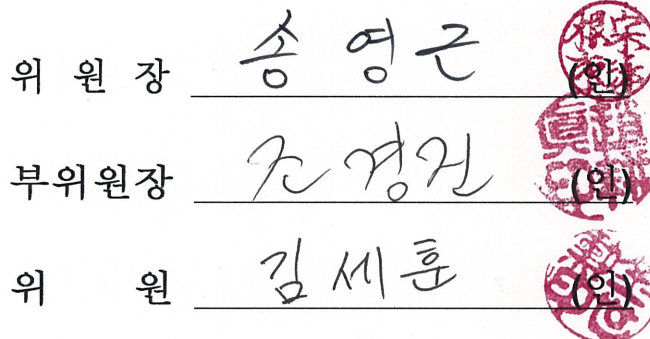 위 원 장 송 영 근 (인)
부위원장 조 경 진 (인)
위 원 김 세 훈 (인)